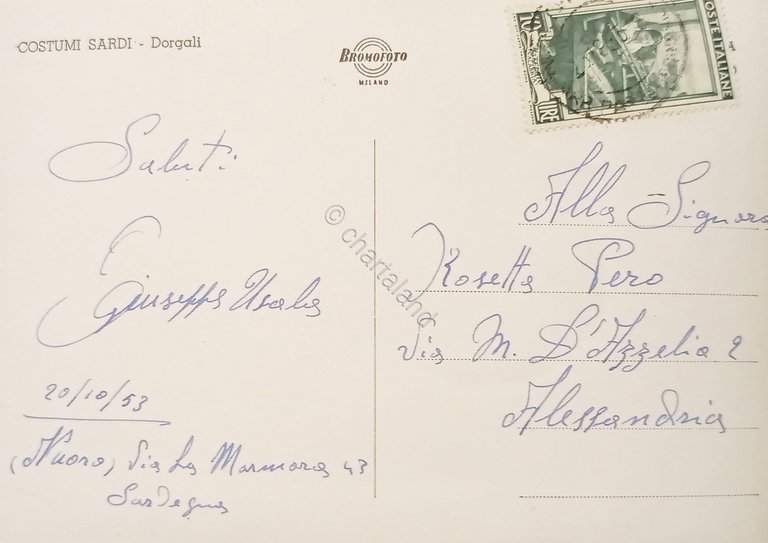 COSTUMI SARDI - Dorgali
BROMOFOTO
MILANO
POSTE ITALIANE
10 LIRE
Saluti
Giuseppa Usala
20/10/53
(Nuoro) Via La Marmora 43
Sardegna
Alla Signora
Rosetta Pero
Via M. D'Azzelia 2
Alessandria
© chartaland